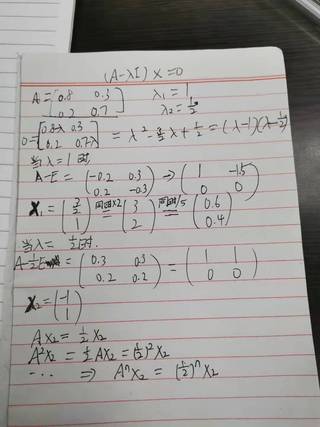 (A-λI) x = 0
A = [0.8 0.3
0.2 0.7] λ₁ = 1
λ₂ = 1/2
0 = [0.8-λ 0.3
0.2 0.7-λ] = λ² - 3/2 λ + 1/2 = (λ-1)(λ-1/2)
当λ=1时
A-E = (-0.2 0.3
0.2 -0.3) → (1 -1.5
0 0)
X₁ = (3/2
1) 同时×2 = (3
2) 同时/5 = (0.6
0.4)
当λ= 1/2时.
A-1/2E = (0.3 0.3
0.2 0.2) = (1 1
0 0)
X₂ = (-1
1)
AX₂ = 1/2 X₂
A²X₂ = 1/2 AX₂ = (1/2)² X₂
... ⇒ AⁿX₂ = (1/2)ⁿ X₂